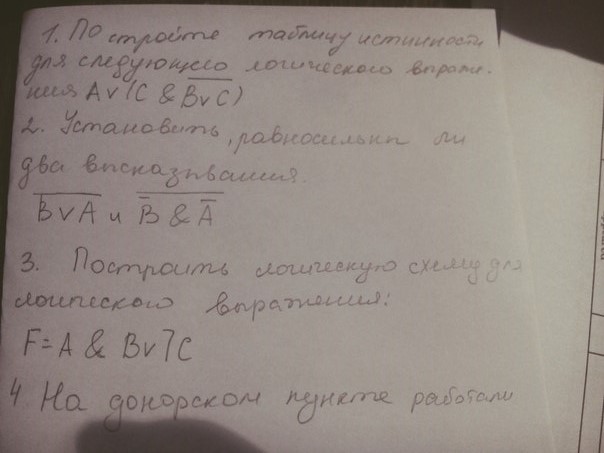 1. Постройте таблицу истинности
для следующего логического выраже-
ния A v (C & B̅ ̅v̅ ̅C̅)
2. Установить, равносильны ли
два высказывания.
B̅ ̅v̅ ̅A̅ и B̅̅ ̅&̅ ̅A̅̅
3. Построить логическую схему для
логического выражения:
F = A & B v ⌉C
4 На донорском пункте работали